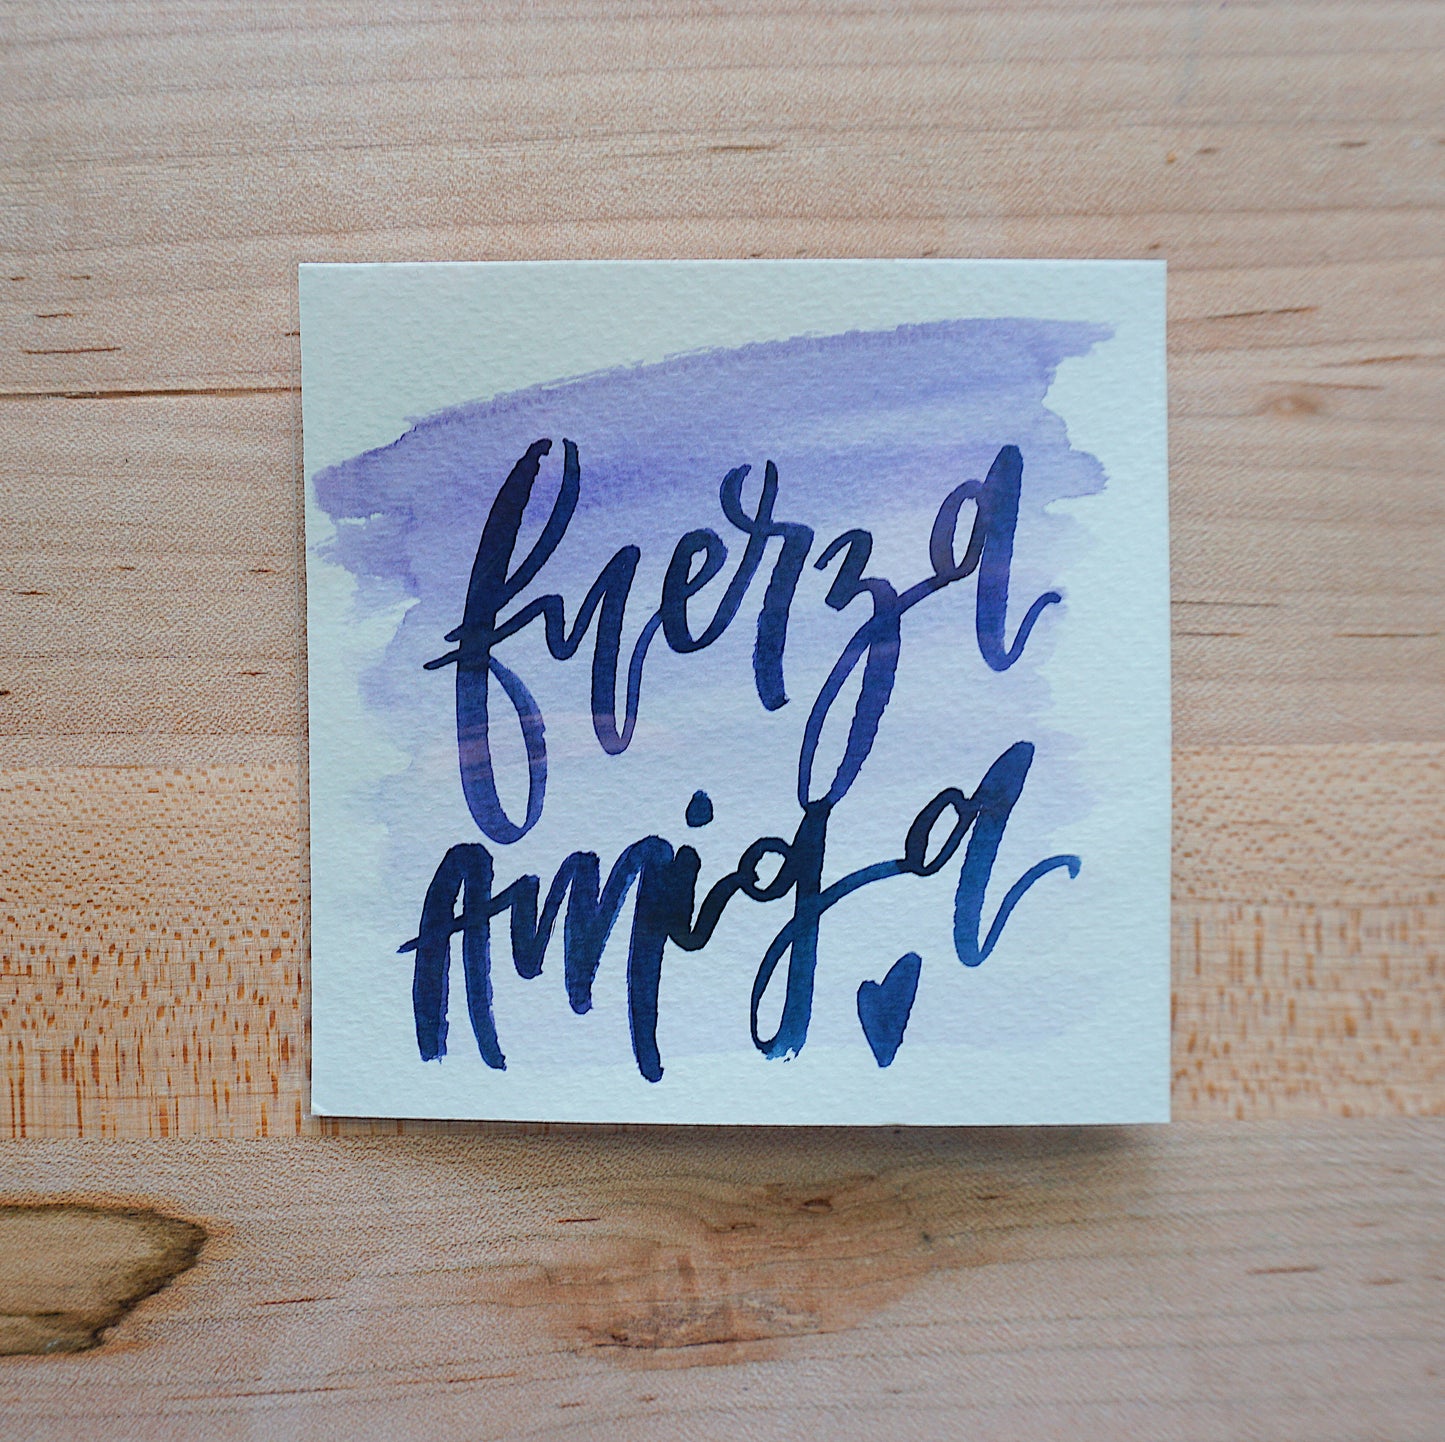 fuerza
Amiga